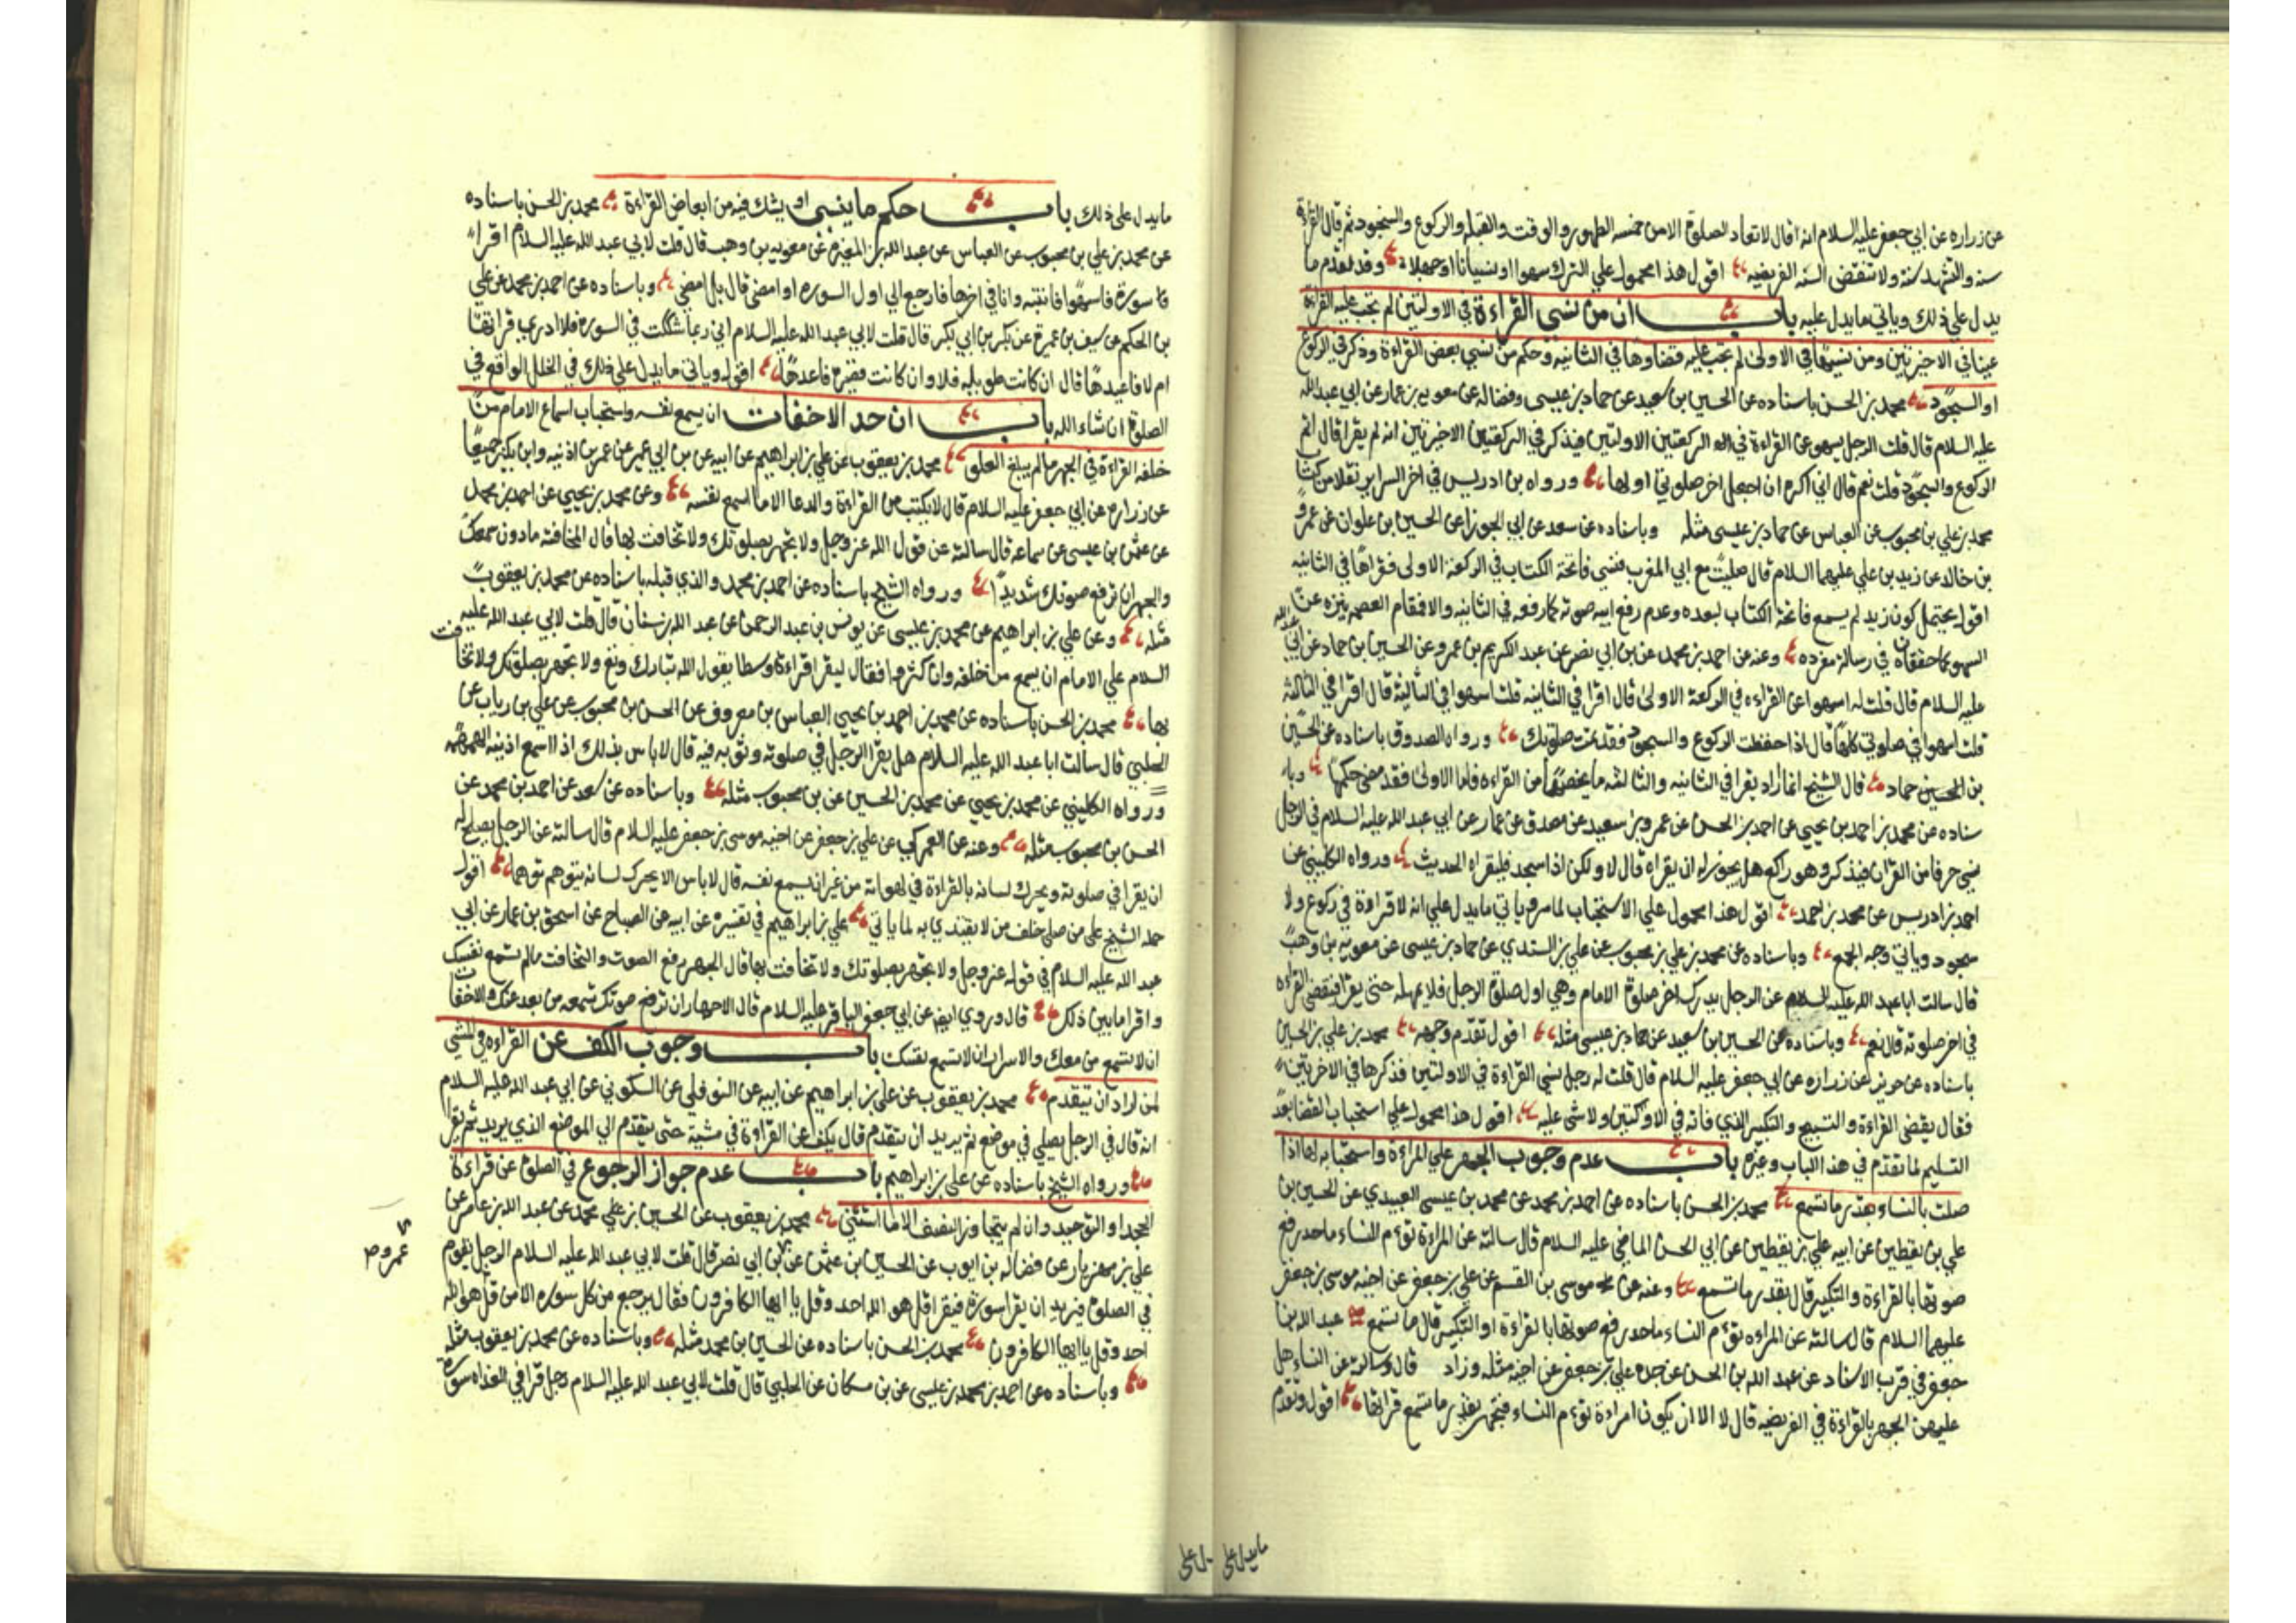 عن زراره عن ابي جعفر عليه السلام انه قال لا تعاد الصلوة الا من خمسه الطهور والوقت والقبله والركوع والسجود ثم قال القراءة
سنه والتشهد سنة ولا تنقض السنه الفريضيه اقول هذا محمول علي الترك سهوا او نسيانا او جهلا وقد تقدم ما
يدل علي ذلك وياتي ما يدل عليه باب ان من نسي القراءة في الاولتين لم تجب عليه القراءة
عينا في الاخيرتين ومن نسيها في الاولى لم تجب عليه قضاوها في الثانيه وحكم من نسي بعض القراءة وذكر في الركوع
او السجود محمد بن الحسن باسناده عن الحسين بن سعيد عن حماد بن عيسى وفضاله عن معويه بن عمار عن ابي عبدالله
عليه السلام قال قلت الرجل يسهو عن القراءة في الركعتين الاولتين فيذكر في الركعتين الاخيرتين انه لم يقرا قال اتم
الركوع والسجود قلت نعم قال اني اكره ان اجعل اخر صلوتي اولها ورواه بن ادريس في اخر السراير نقلا من كتاب
محمد بن علي بن محبوب عن العباس عن حماد بن عيسى مثله وباسناده عن سعد عن ابي الجوزا عن الحسين بن علوان عن عمرو
بن خالد عن زيد بن علي عليهما السلام قال صليت مع ابي المغرب فنسى فاتحة الكتاب في الركعة الاولى فقراها في الثانيه
اقول يحتمل كون زيد لم يسمع فاتحة الكتاب لبعده وعدم رفع ابيه صوته كما رفعه في الثانيه والا فمقام العصمه ينزه عن
السهو كما حققناه في رسالة مفرده وعنه عن احمد بن محمد عن بن ابي نصر عن عبد الكريم بن عمرو عن الحسين بن حماد عن ابي عبد الله
عليه السلام قال قلت له اسهوا عن القراءه في الركعة الاولى قال اقرا في الثانيه قلت اسهوا في الثانية قال اقرا في الثالثة
قلت اسهوا في صلوتي كلها قال اذا حفظت الركوع والسجود فقد تمت صلوتك ورواه الصدوق باسناده عن الحسين
بن الحسين حماد قال الشيخ انما اراد يقرا في الثانيه والثالثه ما يخصهما من القراءه فاما الاولى فقد مضى حكمها وبا
سناده عن محمد بن احمد بن يحيي عن احمد بن الحسن عن عمرو بن سعيد عن مصدق عن عمار عن ابي عبد الله عليه السلام في الرجل
نسي حرفا من القران فيذكر وهو راكع هل يجوز له ان يقراه قال لا ولكن اذا سجد فليقراه الحديث ورواه الكليني عن
احمد بن ادريس عن محمد بن احمد اقول هذا محمول علي الاستحباب لما مر وياتي ما يدل علي انه لا قراءة في ركوع ولا
سجود وياتي وجه الجمع وباسناده عن محمد بن علي بن محبوب عن علي بن السندي عن حماد بن عيسى عن معويه بن وهب
قال سالت ابا عبد الله عليه السلام عن الرجل يدرك اخر صلوة الامام وهي اول صلوة الرجل فلا يمهله حتى يقرا فيقضي القراءه
في اخر صلوته قال نعم وباسناده عن الحسين بن سعيد عن حماد بن عيسى مثله اقول تقدم وجهه محمد بن علي بن الحسين
باسناده عن حريز عن زراره عن ابي جعفر عليه السلام قال قلت له رجل نسي القراءة في الاولتين فذكرها في الاخريتين
فقال يقضي القراءة والتسبيح والتكبير الذي فاته في الاولتين ولا شى عليه اقول هذا محمول علي استحباب القضا بعد
التسليم لما تقدم في هذا الباب وغيره باب عدم وجوب الجهر علي المراءة واستحبابه لها اذا
صلت بالنساء بقدر ما تسمع محمد بن الحسن باسناده عن احمد بن محمد عن محمد بن عيسى العبيدي عن الحسين بن
علي بن يقطين عن ابيه علي بن يقطين عن ابي الحسن الماضي عليه السلام قال سالته عن المراءة تؤم النساء ما حد رفع
صوتها بالقراءة والتكبير قال بقدر ما تسمع وعنه عن موسى بن القسم عن علي بن جعفر عن اخيه موسى بن جعفر
عليهما السلام قال سالته عن المراءه تؤم النساء ما حد رفع صوتها بالقراءة او التكبير قال ما تسمع عبد الله بن
جعفر في قرب الاسناد عن عبد الله بن الحسن عن جده علي بن جعفر عن اخيه مثله وزاد قال وسالته عن النساء هل
عليهن الجهر بالقراءة في الفريضه قال لا الا ان يكون امراءة تؤم النساء فتجهر بقدر ما تسمع قراتها اقول وتقدم
ما يدل علي
ما يدل علي ذلك باب حكم ما ينسى او يشك فيه من ابعاض القراءة محمد بن الحسن باسناده
عن محمد بن علي بن محبوب عن العباس عن عبد الله بن المغيره عن معويه بن وهب قال قلت لابي عبد الله عليه السلام اقرا
سورة فاسهوا فانتبه وانا في اخرها فارجع الي اول السوره او امضي قال بل امضي وباسناده عن احمد بن محمد عن علي
بن الحكم عن سيف بن عميرة عن بكر بن ابي بكر قال قلت لابي عبد الله عليه السلام اني ربما شككت في السوره فلا ادري قراتها
ام لا فاعيدها قال ان كانت طويله فلا وان كانت قصيره فاعدها اقول وياتي ما يدل علي ذلك في الخلل الواقع في
الصلوة ان شاء الله باب ان حد الاخفات ان يسمع نفسه واستحباب اسماع الامام من
خلفه القراءة في الجهر ما لم يبلغ العلو محمد بن يعقوب عن علي بن ابراهيم عن ابيه عن بن ابي عمير عن عمر بن اذنيه وابن بكير جميعا
عن زراره عن ابي جعفر عليه السلام قال لا يكتب من القراءة والدعا الا ما اسمع نفسه وعن محمد بن يحيي عن احمد بن محمد
عن عثمن بن عيسى عن سماعه قال سالته عن قول الله عز وجل ولا تجهر بصلوتك ولا تخافت بها قال المخافته ما دون سمعك
والجهر ان ترفع صوتك شديدا ورواه الشيخ باسناده عن احمد بن محمد والذي قبله باسناده عن محمد بن يعقوب
مثله وعن علي بن ابراهيم عن محمد بن عيسى عن يونس بن عبد الرحمن عن عبد الله بن سنان قال قلت لابي عبد الله عليه
السلام علي الامام ان يسمع من خلفه وان كثروا فقال ليقرا قراءة وسطا يقول الله تبارك وتع ولا تجهر بصلوتك ولا تخافت
بها محمد بن الحسن باسناده عن محمد بن احمد بن يحيي العباس بن معروف عن الحسن بن محبوب عن علي بن رياب عن
الحلبي قال سالت ابا عبد الله عليه السلام هل يقرا الرجل في صلوته وثوبه فيه قال لا باس بذلك اذا اسمع اذنيه الهمهمه
ورواه الكليني عن محمد بن يحيي عن محمد بن الحسين عن بن محبوب مثله وباسناده عن سعد عن احمد بن محمد عن
الحسن بن محبوب مثله وعنه عن العمركي عن علي بن جعفر عن اخيه موسى بن جعفر عليه السلام قال سالته عن الرجل يصلح له
ان يقرا في صلوته ويحرك لسانه بالقراءة في لهواته من غير ان يسمع نفسه قال لا باس الا يحرك لسانه يتوهم توهما اقول
حمله الشيخ علي من صلى خلف من لا يقتدي به لما ياتي علي بن ابراهيم في تفسيره عن ابيه عن الصباح عن اسحق بن عمار عن ابي
عبد الله عليه السلام في قوله عز وجل ولا تجهر بصلوتك ولا تخافت بها قال الجهر رفع الصوت والتخافت ما لم تسمع نفسك
واقرا ما بين ذلك قال وروي ايض عن ابي جعفر الباقر عليه السلام قال الاجهار ان ترفع صوتك تسمعه من بعد عنك والاخفات
ان لا تسمع من معك والاسرار ان لا تسمع نفسك باب وجوب الكف عن القراءه في المشي
لمن اراد ان يتقدم محمد بن يعقوب عن علي بن ابراهيم عن ابيه عن النوفلي عن السكوني عن ابي عبد الله عليه السلام
انه قال في الرجل يصلي في موضع ثم يريد ان يتقدم قال يكف عن القراءة في مشيه حتى يتقدم الي الموضع الذي يريد ثم يقرا
ورواه الشيخ باسناده عن علي بن ابراهيم باب عدم جواز الرجوع في الصلوة عن قراءة
الجحد او التوحيد وان لم يتجاوز النصف الا ما استثني محمد بن يعقوب عن الحسين بن علي محمد عن عبد الله بن عامر عن
علي بن مهزيار عن فضاله بن ايوب عن الحسين بن عثمن عن بن ابي نصر قال قلت لابي عبد الله عليه السلام الرجل يقوم
عمرو ص
في الصلوة فيريد ان يقرا سورة فيقرا قل هو الله احد وقل يا ايها الكافرون فقال يرجع من كل سوره الا من قل هو الله
احد وقل يا ايها الكافرون محمد بن الحسن باسناده عن الحسين بن محمد مثله وباسناده عن محمد بن يعقوب مثله
وباسناده عن احمد بن محمد بن عيسى عن بن مسكان عن الحلبي قال قلت لابي عبد الله عليه السلام رجل قرا في الغداه سورة